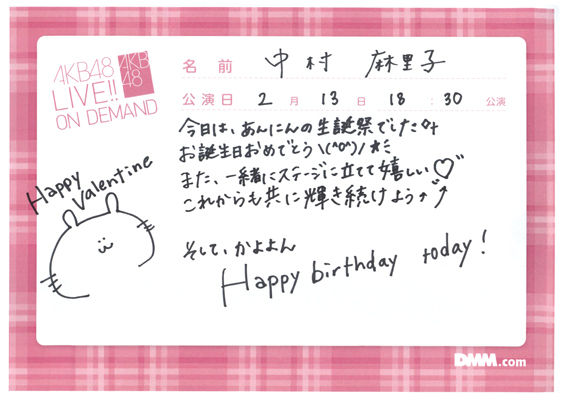 AKB48
LIVE!!
ON DEMAND
AKB
48
名前 中村 麻里子
公演日 2月 13日 18:30 公演
今日は、あんにんの生誕祭でした
お誕生日おめでとう\(^o^)/★ミ
また、一緒にステージに立てて嬉しい♡
これからも共に輝き続けよう↑↑
Happy
Valentine
そして、かよよん
Happy birthday today!
DMM.com